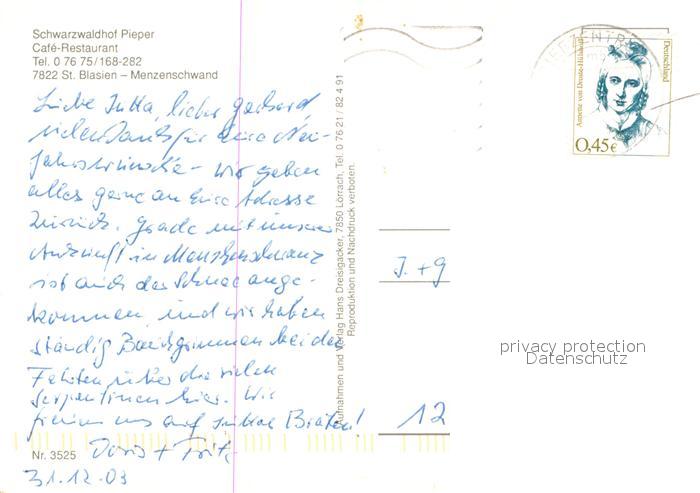 Schwarzwaldhof Pieper
Café-Restaurant
Tel. 0 76 75/168-282
7822 St. Blasien – Menzenschwand
Liebe Jutta, lieber Gerhard,
vielen Dank für Eure Neu-
jahrswünsche – wir geben
alles gerne an Eure Adresse
zurück. Grade mit unserer
Ankunft in Menzenschwand
ist auch der Schnee ange-
kommen, und wir haben
ständig Bauchgrimmen bei den
Fahrten über die vielen
Serpentinen hier. Wir
freuen uns auf Juttas Braten!
Doris + Fritz
Nr. 3525
31.12.03
Aufnahmen und Verlag Hans Dreisigacker, 7850 Lörrach, Tel. 0 76 21 / 82 4 91
Reproduktion und Nachdruck verboten.
J. + G
12
Annette von Droste-Hülshoff
Deutschland
0,45€
privacy protection
Datenschutz